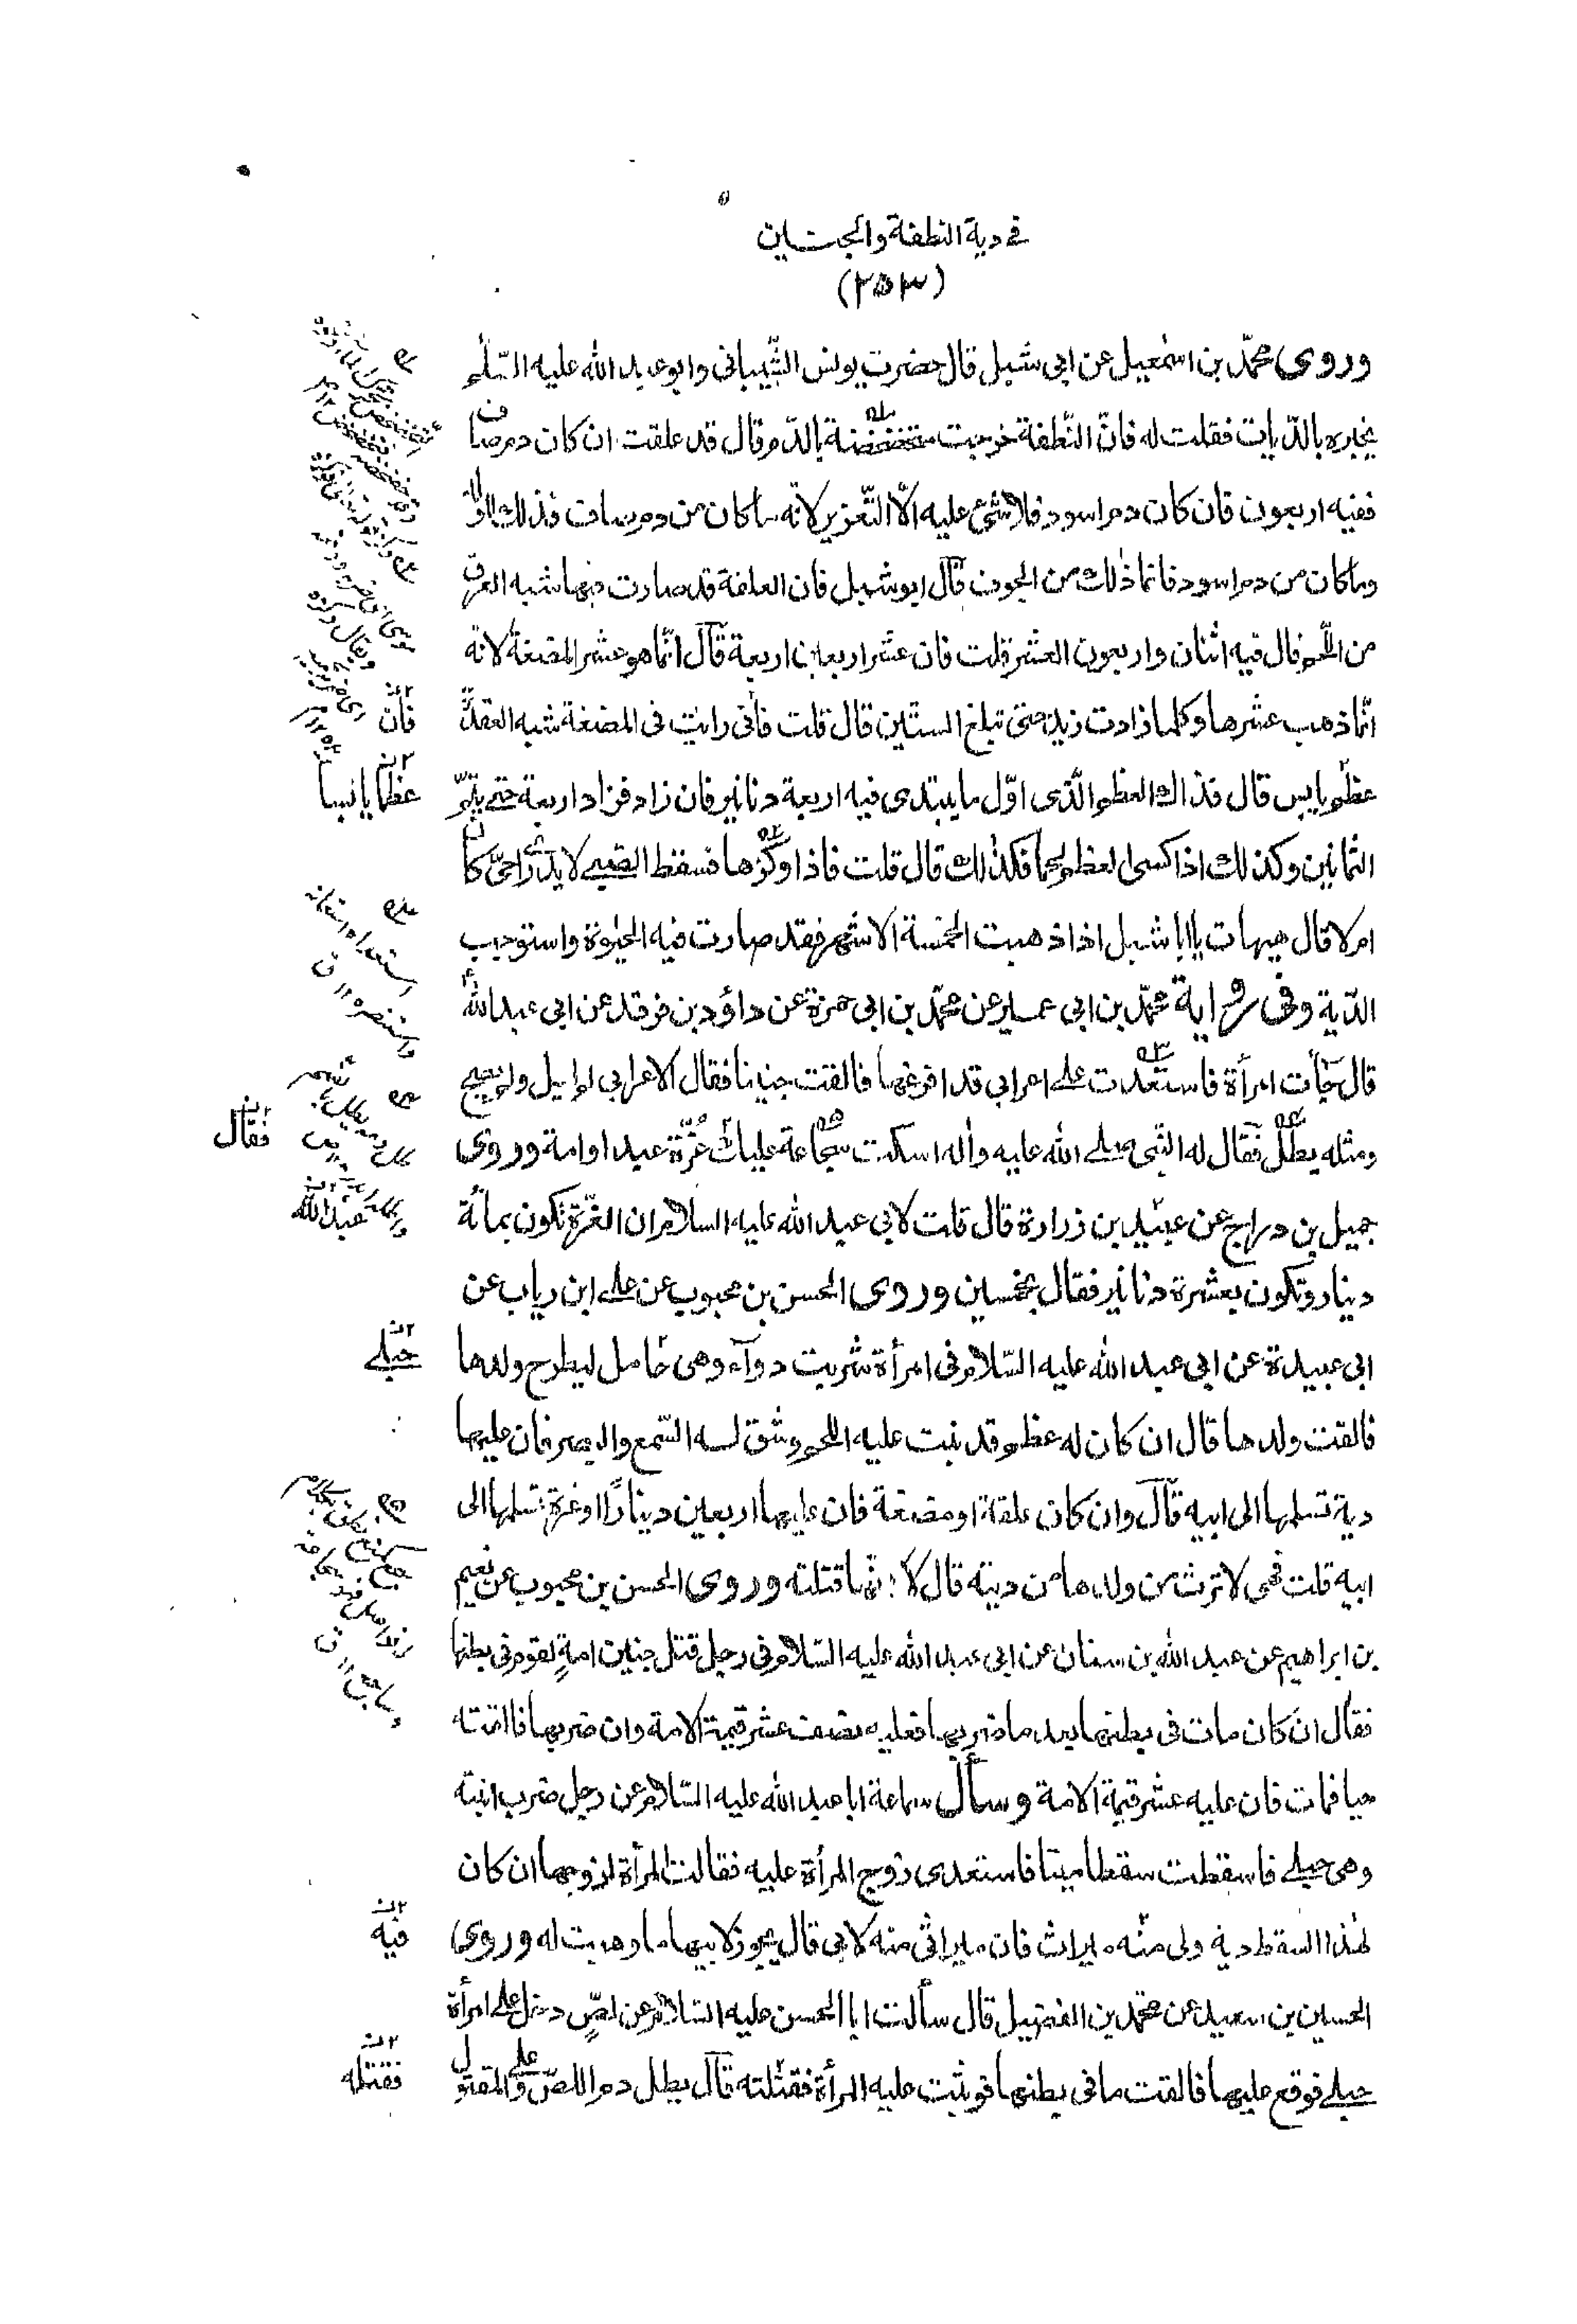 في دية النطفة والجنين
(٢٥٣)
وروى محمّد بن اسمٰعيل عن ابى شبل قال حضرت يونس الشّيبانى وابو عبد الله عليه السّلم
يخبره بالدّيات فقلت له فانّ النّطفة خرجت متخضخضة بالدّم قال قد علقت ان كان دم صاف
ففيه اربعون فان كان دم اسود فلا شئ عليه الّا التّعزير لانّه ما كان من دم صاف فذلك للولد
وما كان من دم اسود فانما ذٰلك من الجوف قال ابو شبل فان العلقة قد صارت فيها شبه العرق
من اللّحم قال فيه اثنان واربعون العشر قلت فان عشر اربعين اربعة قال انّما هو عشر المضغة لانّه
انّما ذهب عشرها وكلما زادت زيد حتى تبلغ الستّين قال قلت فانّى رايت فى المضغة شبه العقدة
عظم يابس قال فذاك العظم الّذى اوّل ما يبتدى فيه اربعة دنانير فان زاد فزاد اربعة حتى يتمّ
الثمانين وكذلك اذا كسى العظم لحما فكذلك قال قلت فاذا وكزها فسقط الصّبى لا يدرى احىّ كان
ام لا قال هيهات يا ابا شبل اذا ذهبت الخمسة الاشهر فقد صارت فيه الحيٰوة واستوجب
الدّية وفى رواية محمّد بن ابى عمير عن محمّد بن ابى حمزة عن داؤد بن فرقد عن ابى عبد الله ع
قال جٰأت امرأة فاستعدت على اعرابى قد افزعها فالقت جنينا فقال الاعرابى لم يهل ولم يصح
ومثله يطلّ فقال له النّبى صلى الله عليه واٰله اسكت سجّاعة عليك غرّة عبد او امة وروى
جميل بن دراج عن عبيد بن زرارة قال قلت لابى عبد الله عليه السلام ان الغرّة تكون بمائة
دينار وتكون بعشرة دنانير فقال بخمسين وروى الحسن بن محبوب عن على ابن رياب عن
ابى عبيدة عن ابى عبد الله عليه السّلام فى امرأة شربت دوآء وهى حامل ليطرح ولدها
فالقت ولدها قال ان كان له عظم قد نبت عليه اللحم وشق له السّمع والبصر فان عليها
دية تسلمها الى ابيه قال وان كان علقة او مضغة فان عليها اربعين دينارًا او غرة تسلمها الى
ابيه قلت فهى لا ترث من ولدها من ديته قال لا لانّها قتلته وروى الحسن بن محبوب عن نعيم
بن ابراهيم عن عبد الله بن سنان عن ابى عبد الله عليه السّلام فى رجل قتل جنين امةٍ لقوم فى بطنها
فقال ان كان مات فى بطنها بعد ما ضربها فعليه نصف عشر قيمة الامة وان ضربها فالقته
حيا فمات فان عليه عشر قيمة الامة وسأل سماعة ابا عبد الله عليه السّلام عن رجل ضرب ابنته
وهى حبلى فاسقطت سقطا ميتا فاستعدى زوج المرأة عليه فقالت المرأة لزوجها ان كان
لهٰذا السقط دية ولى منه ميراث فان ميراثى منه لابى قال يجوز لابيها ما وهبت له وروى
الحسين بن سعيد عن محمّد بن الفضيل قال سألت ابا الحسن عليه السّلام عن لصٍّ دخل على امرأة
حبلى فوقع عليها فالقت ما فى بطنها فوثبت عليه المرأة فقتلته قال يطل دم اللصّ وعلى المقتول
فان
عظما يابسا
فقال
عبد الله
حبلى
فيه
فقتله